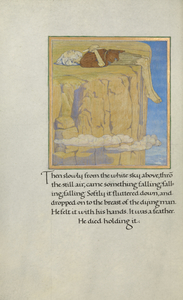 Then slowly from the white sky above, thro'
the still air, came something falling, fall-
ing, falling. Softly it fluttered down, and
dropped on to the breast of the dying man.
He felt it with his hands. It was a feather.
He died holding it.